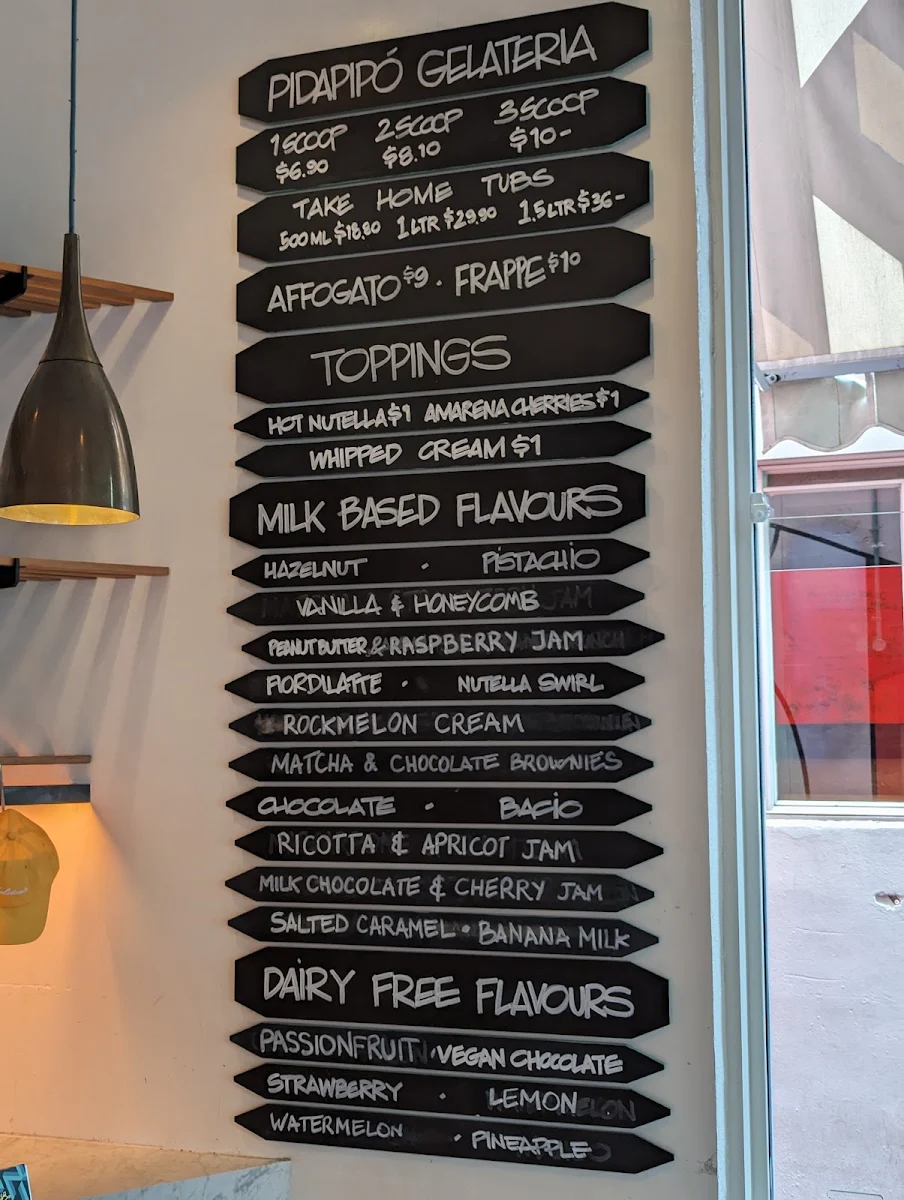 PIDAPIPÓ GELATERIA
1 SCOOP 2 SCOOP 3 SCOOP
$6.90 $8.10 $10-
TAKE HOME TUBS
500ML $18.80 1LTR $29.90 1.5LTR $36-
AFFOGATO $9 · FRAPPE $10
TOPPINGS
HOT NUTELLA $1 AMARENA CHERRIES $1
WHIPPED CREAM $1
MILK BASED FLAVOURS
HAZELNUT · PISTACHIO
VANILLA & HONEYCOMB
PEANUT BUTTER & RASPBERRY JAM
FIORDILATTE · NUTELLA SWIRL
ROCKMELON CREAM
MATCHA & CHOCOLATE BROWNIES
CHOCOLATE · BACIO
RICOTTA & APRICOT JAM
MILK CHOCOLATE & CHERRY JAM
SALTED CARAMEL · BANANA MILK
DAIRY FREE FLAVOURS
PASSIONFRUIT · VEGAN CHOCOLATE
STRAWBERRY · LEMON
WATERMELON · PINEAPPLE